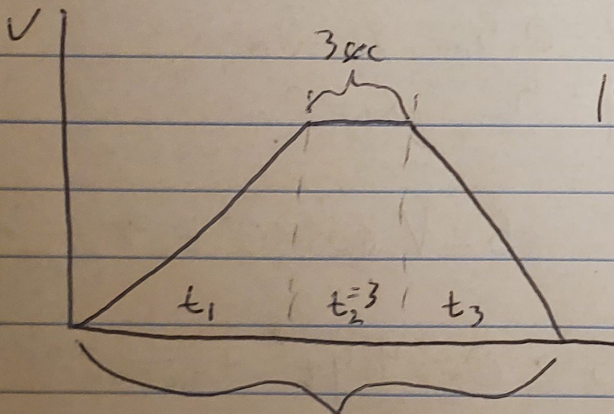 V
3 sec
t₁ t₂=3 t₃